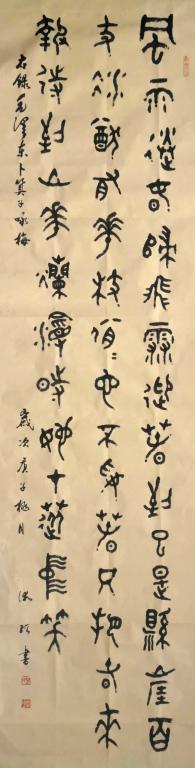 風雨送春歸飛雪迎春到已是縣崖百
丈冰猶有華枝俏=也不爭春只把春來
報待到山華爛漫時她在叢中笑
右錄毛澤東卜算子咏梅
歲次庚子桃月
書